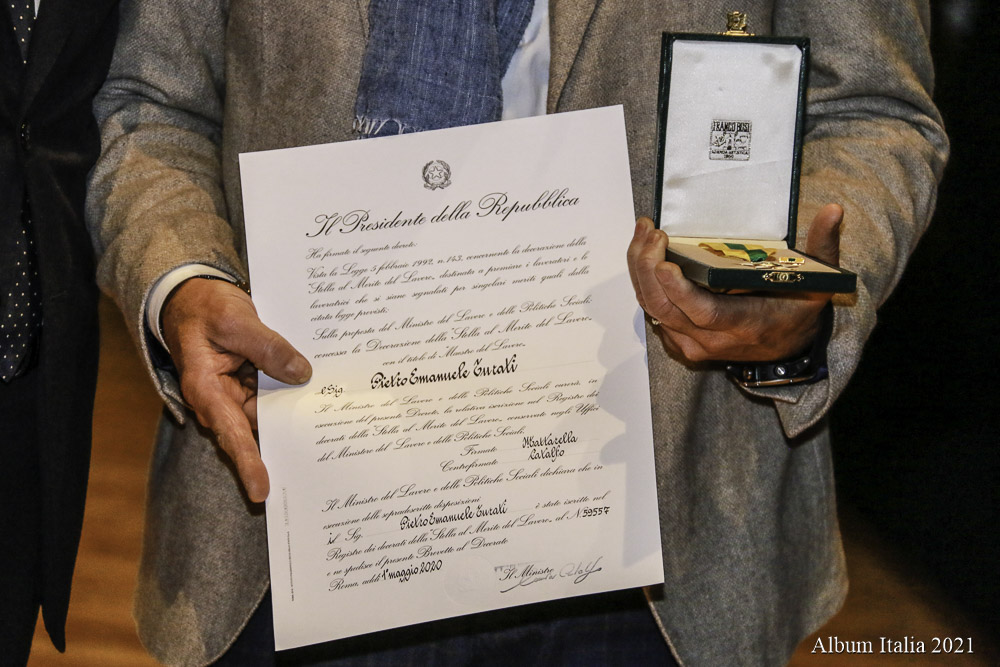 Il Presidente della Repubblica
Ha firmato il seguente decreto:
Vista la Legge 5 febbraio 1992, n. 143, concernente la decorazione della
"Stella al Merito del Lavoro", destinata a premiare i lavoratori e le
lavoratrici che si siano segnalati per singolari meriti quali dalla
citata legge previsti.
Sulla proposta del Ministro del Lavoro e delle Politiche Sociali:
concessa la Decorazione della "Stella al Merito del Lavoro"
con il titolo di Maestro del Lavoro
al Sig. Pietro Emanuele Turati
Il Ministro del Lavoro e delle Politiche Sociali curerà, in
esecuzione del presente Decreto, la relativa iscrizione nel Registro dei
decorati della "Stella al Merito del Lavoro", conservato negli Uffici
del Ministero del Lavoro e delle Politiche Sociali.
Firmato Mattarella
Controfirmato Catalfo
Il Ministro del Lavoro e delle Politiche Sociali dichiara che in
esecuzione delle sopradescritte disposizioni
il Sig. Pietro Emanuele Turati è stato iscritto nel
Registro dei decorati della "Stella al Merito del Lavoro", al N. 59557
e ne spedisce il presente Brevetto al Decorato
Roma, addì 1° maggio 2020
Il Ministro
FRANCO BOSI
1960
Album Italia 2021